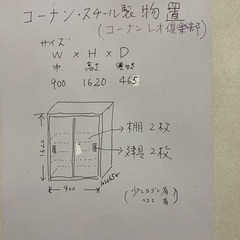 コーナン・スチール製物置
(コーナンレオ倶楽部)
サイズ
W × H × D
巾 高さ 奥行き
900 1620 465
棚 2枚
建具 2枚
1620
900
465
(少しサビ有
ヘコミ有)